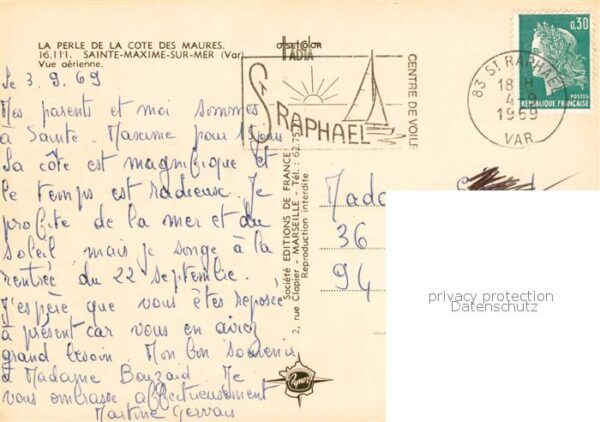 LA PERLE DE LA COTE DES MAURES.
16.111. SAINTE-MAXIME-SUR-MER (Var)
Vue aérienne.
le 3.9.69
Mes parents et moi sommes
à Sainte-Maxime pour
La côte est magnifique et
le temps est radieux. Je
profite de la mer et du
soleil mais je songe à la
rentrée du 22 septembre.
J'espère que vous êtes reposée
à présent car vous en aviez
grand besoin. Mon bon souvenir
à Madame Bouzard Je
vous embrasse affectueusement
Martine Gervais
offset Color
TADIA
Société EDITIONS DE FRANCE
2, rue Clapier - MARSEILLE - Tél. : 62.75.
Reproduction interdite
ST RAPHAEL
CENTRE DE VOILE
83 ST RAPHAEL
18 H
4-9
1969
VAR
0,30
POSTES
REPUBLIQUE FRANÇAISE
Mada
36
94
privacy protection
Datenschutz